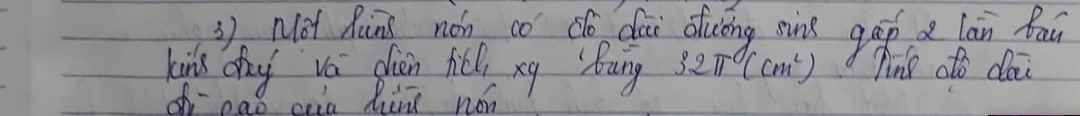 3) Một hình nón có độ dài đường sinh gấp 2 lần bán
kính đáy và diện tích xq bằng 32π (cm²). Tính độ dài
đg cao của hình nón